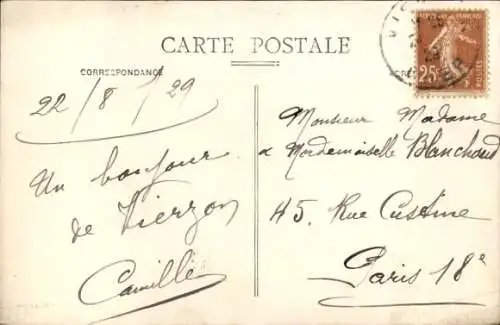 CARTE POSTALE
CORRESPONDANCE
22/8/29
Un bonjour
de Vierzon
Camille
25c
POSTES
Monsieur Madame
& Mademoiselle Blanchard
45, Rue Custine
Paris 18e